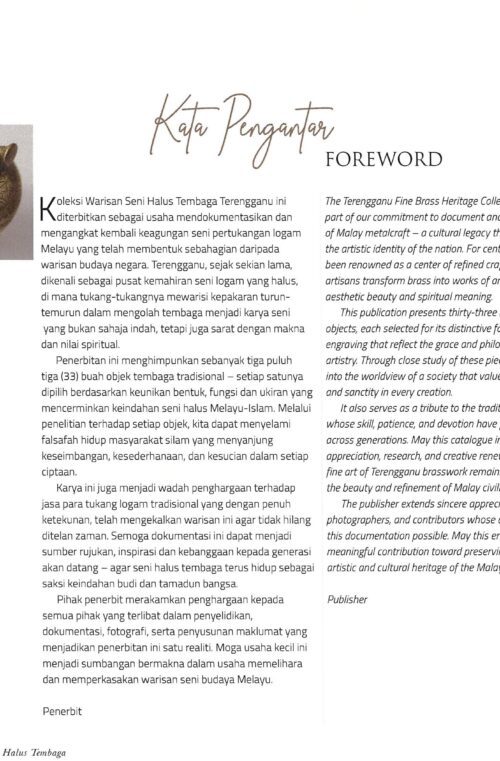 Kata Pengantar
FOREWORD
Koleksi Warisan Seni Halus Tembaga Terengganu ini
diterbitkan sebagai usaha mendokumentasikan dan
mengangkat kembali keagungan seni pertukangan logam
Melayu yang telah membentuk sebahagian daripada
warisan budaya negara. Terengganu, sejak sekian lama,
dikenali sebagai pusat kemahiran seni logam yang halus,
di mana tukang-tukangnya mewarisi kepakaran turun-
temurun dalam mengolah tembaga menjadi karya seni
yang bukan sahaja indah, tetapi juga sarat dengan makna
dan nilai spiritual.
Penerbitan ini menghimpunkan sebanyak tiga puluh
tiga (33) buah objek tembaga tradisional – setiap satunya
dipilih berdasarkan keunikan bentuk, fungsi dan ukiran yang
mencerminkan keindahan seni halus Melayu-Islam. Melalui
penelitian terhadap setiap objek, kita dapat menyelami
falsafah hidup masyarakat silam yang menyanjung
keseimbangan, kesederhanaan, dan kesucian dalam setiap
ciptaan.
Karya ini juga menjadi wadah penghargaan terhadap
jasa para tukang logam tradisional yang dengan penuh
ketekunan, telah mengekalkan warisan ini agar tidak hilang
ditelan zaman. Semoga dokumentasi ini dapat menjadi
sumber rujukan, inspirasi dan kebanggaan kepada generasi
akan datang – agar seni halus tembaga terus hidup sebagai
saksi keindahan budi dan tamadun bangsa.
Pihak penerbit merakamkan penghargaan kepada
semua pihak yang terlibat dalam penyelidikan,
dokumentasi, fotografi, serta penyusunan maklumat yang
menjadikan penerbitan ini satu realiti. Moga usaha kecil ini
menjadi sumbangan bermakna dalam usaha memelihara
dan memperkasakan warisan seni budaya Melayu.
Penerbit
The Terengganu Fine Brass Heritage
part of our commitment to document
of Malay metalcraft – a cultural legacy
the artistic identity of the nation. For
been renowned as a center of refined
artisans transform brass into works of
aesthetic beauty and spiritual meaning.
This publication presents thirty-three
objects, each selected for its distinctive
engraving that reflect the grace and
artistry. Through close study of these
into the worldview of a society that
and sanctity in every creation.
It also serves as a tribute to the
whose skill, patience, and devotion have
across generations. May this catalogue
appreciation, research, and creative
fine art of Terengganu brasswork
the beauty and refinement of Malay
The publisher extends sincere
photographers, and contributors whose
this documentation possible. May this
meaningful contribution toward
artistic and cultural heritage of the
Publisher
Halus Tembaga